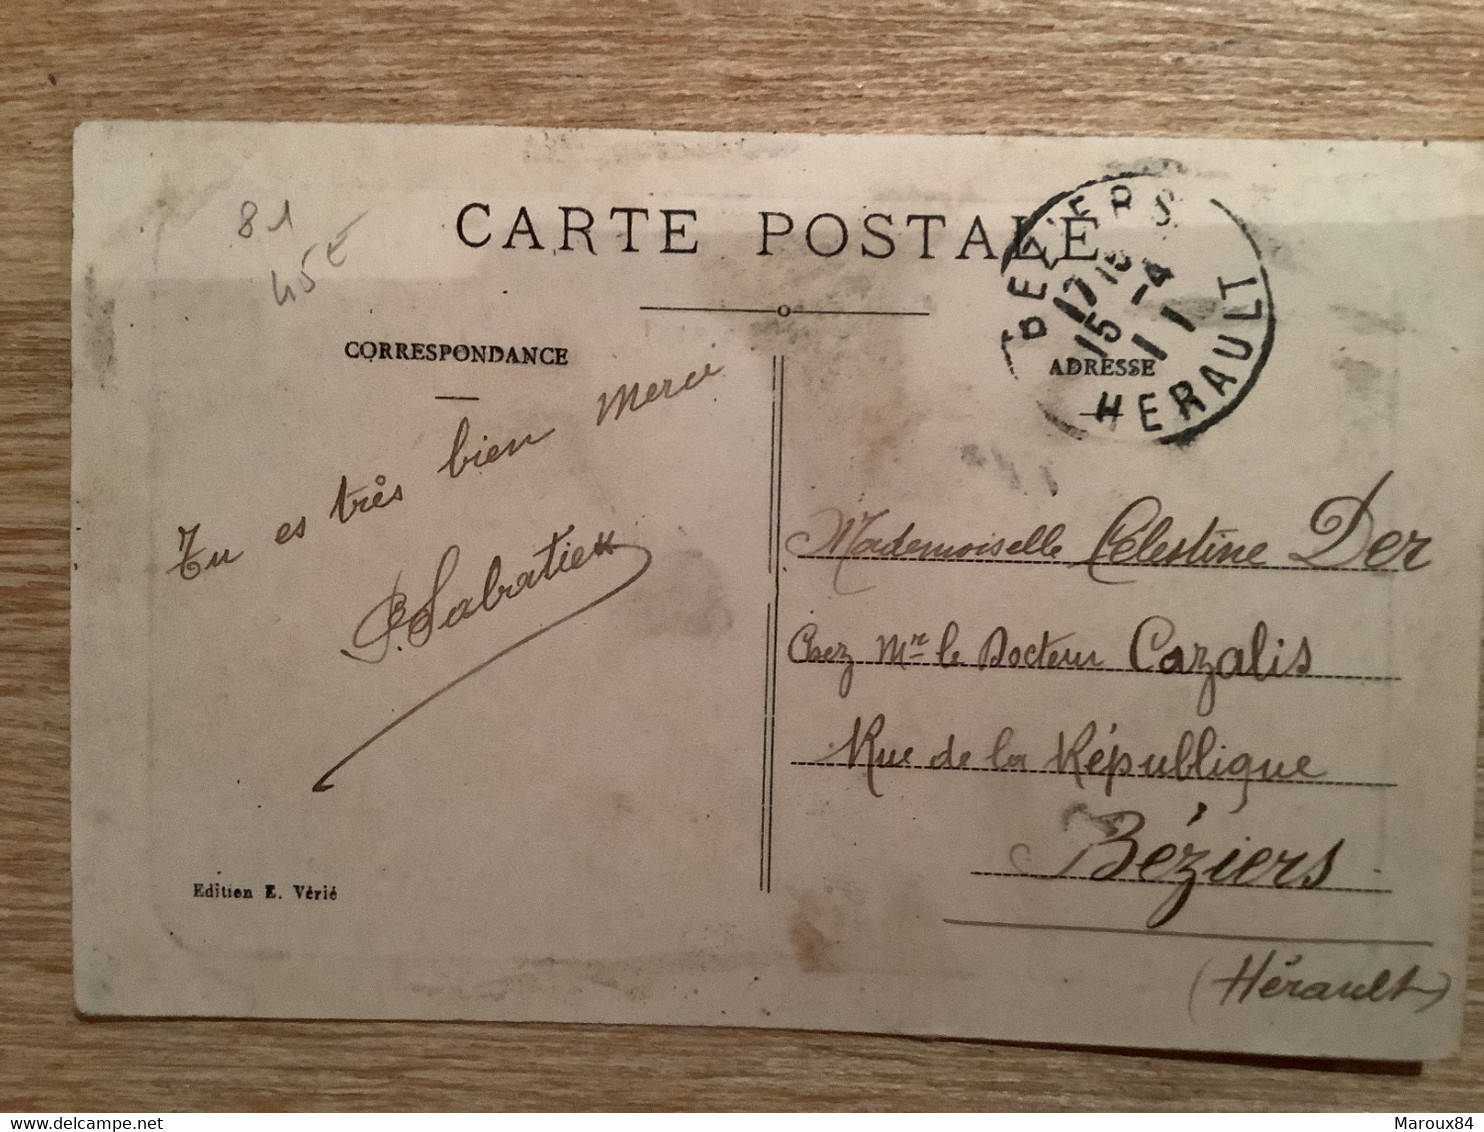 81
45€
CARTE POSTALE
BEZIERS
17 15
15 -4
11
HERAULT
CORRESPONDANCE
ADRESSE
Tu es très bien Merci
P. Sabatier
Mademoiselle Célestine Der
Chez Mr le Docteur Cazalis
Rue de la République
Béziers
(Hérault)
Edition E. Vérié
delcampe.net
Maroux84